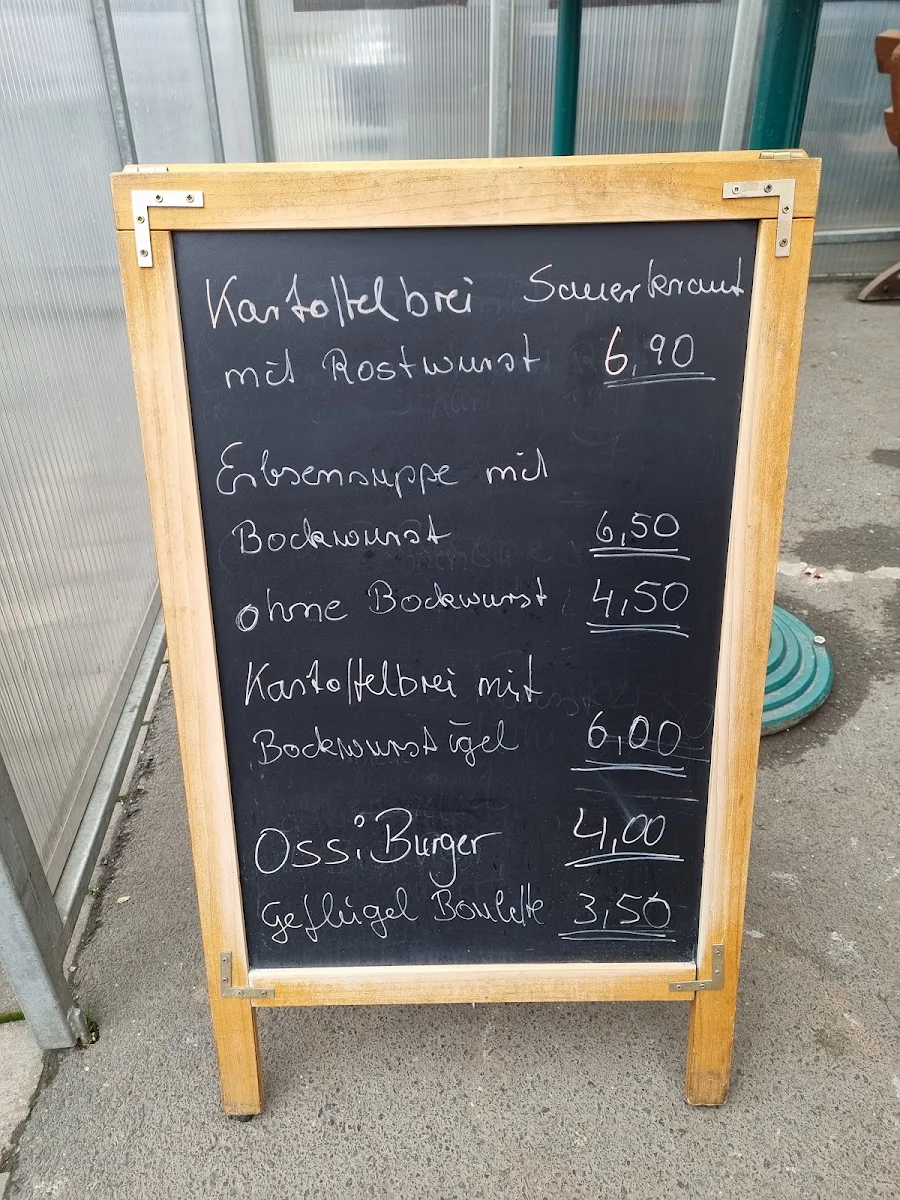 Kartoffelbrei Sauerkraut
mit Rostwurst 6,90
Erbsensuppe mit
Bockwurst 6,50
ohne Bockwurst 4,50
Kartoffelbrei mit
Bockwurstigel 6,00
Ossi Burger 4,00
Geflügel Boulette 3,50